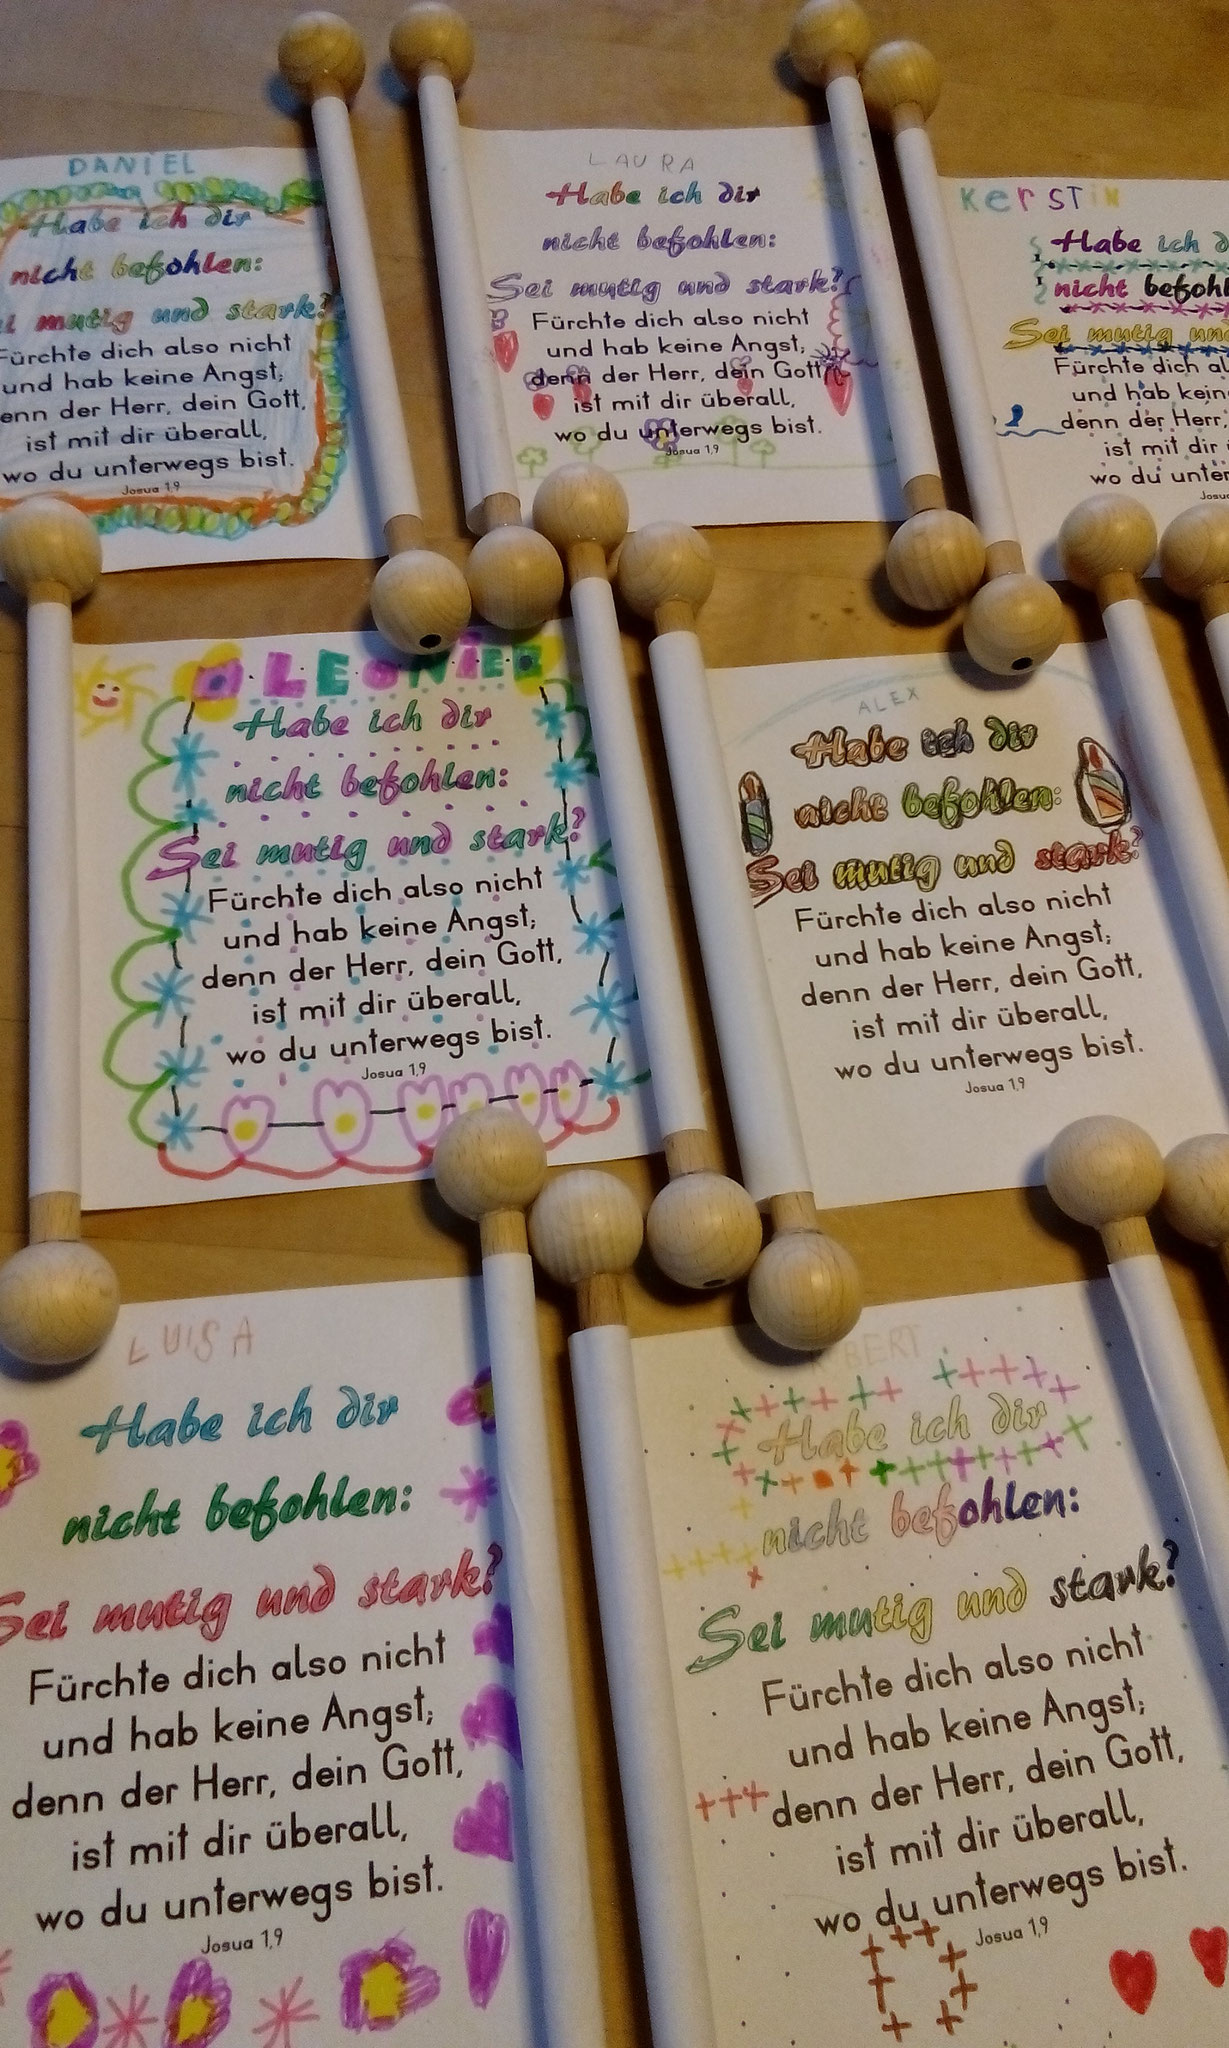 DANIEL
Habe ich dir
nicht befohlen:
mutig und stark?
Fürchte dich also nicht
und hab keine Angst;
denn der Herr, dein Gott,
ist mit dir überall,
wo du unterwegs bist.
Josua 1,9
LAURA
Habe ich dir
nicht befohlen:
Sei mutig und stark?
Fürchte dich also nicht
und hab keine Angst;
denn der Herr, dein Gott,
ist mit dir überall,
wo du unterwegs bist.
Josua 1,9
KerSTiN
Habe ich d
nicht befohl
Sei mutig und
Fürchte dich al
und hab keine
denn der Herr,
ist mit dir
wo du unter
Josu
LEONIE
Habe ich dir
nicht befohlen:
Sei mutig und stark?
Fürchte dich also nicht
und hab keine Angst;
denn der Herr, dein Gott,
ist mit dir überall,
wo du unterwegs bist.
Josua 1,9
ALEX
Habe ich dir
nicht befohlen:
Sei mutig und stark?
Fürchte dich also nicht
und hab keine Angst;
denn der Herr, dein Gott,
ist mit dir überall,
wo du unterwegs bist.
Josua 1,9
LUISA
Habe ich dir
nicht befohlen:
Sei mutig und stark?
Fürchte dich also nicht
und hab keine Angst;
denn der Herr, dein Gott,
ist mit dir überall,
wo du unterwegs bist.
Josua 1,9
BERT
Habe ich dir
nicht befohlen:
Sei mutig und stark?
Fürchte dich also nicht
und hab keine Angst;
denn der Herr, dein Gott,
ist mit dir überall,
wo du unterwegs bist.
Josua 1,9